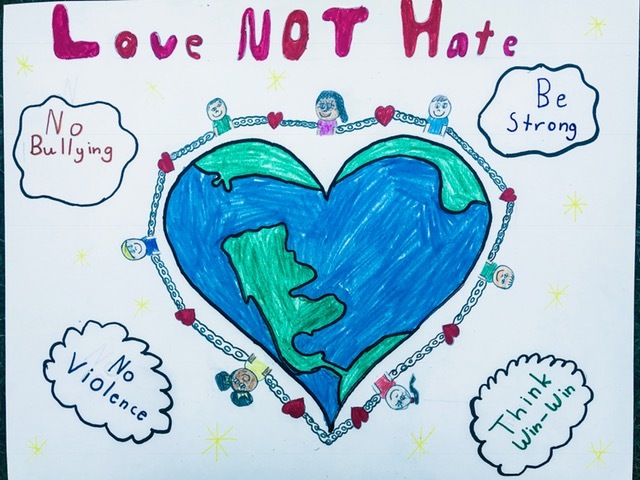 Love NOT Hate
No
Bullying
Be
Strong
No
Violence
Think
Win-Win